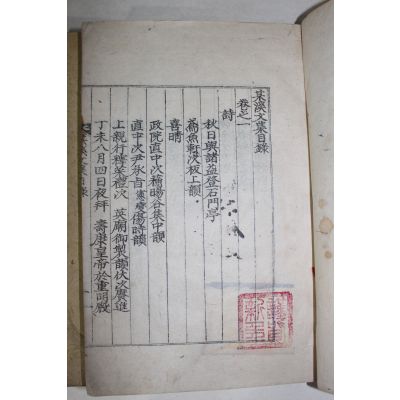 某溪文集目錄
卷之一
詩
秋日與諸益登石門亭
鳶魚軒次板上韻
喜晴
政院直中次暘谷集中韻
直中次尹承旨憲傷時韻
上親行釋奠禮次 英廟御製韻伏次賡進
丁未八月四日夜拜 壽康皇帝於重明殿
文集目錄